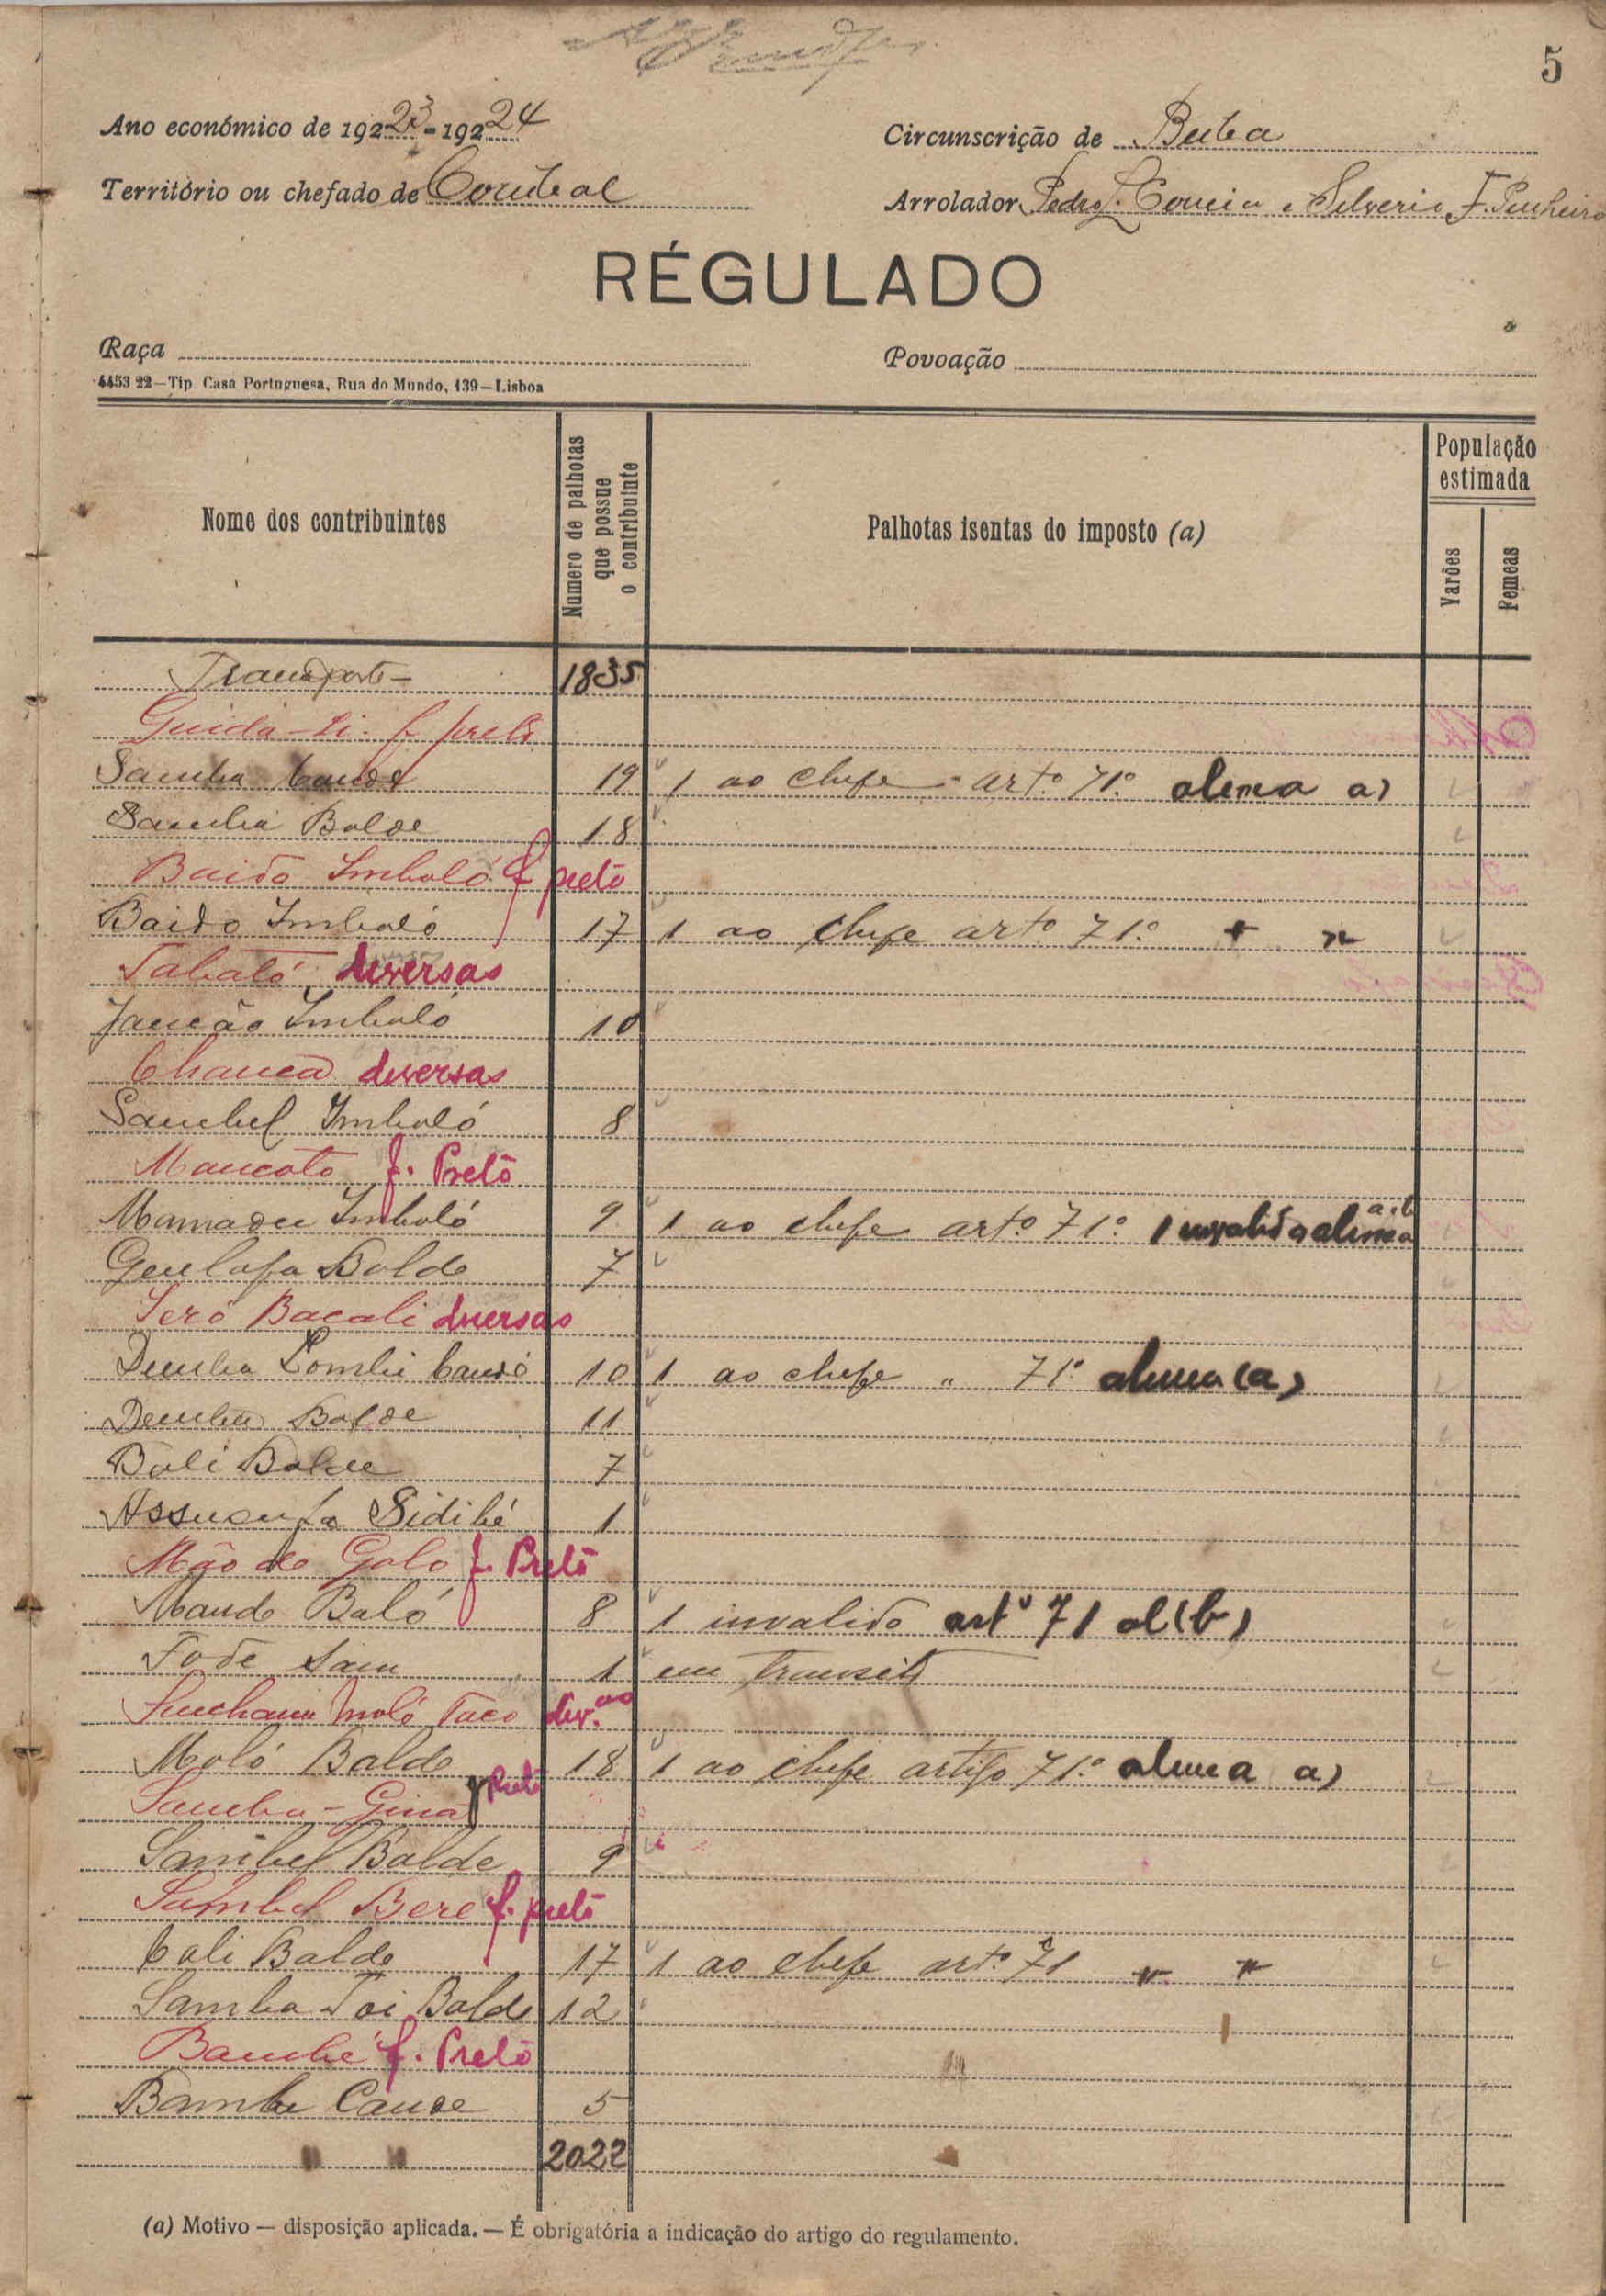 5
Ano económico de 19223-19224
Circunscrição de Buba
Território ou chefado de Corubal
Arrolador Pedro L. Correia e Silverio F. Pinheiro
RÉGULADO
Raça
Povoação
4453 22—Tip. Casa Portuguesa, Rua do Mundo, 139—Lisboa
Nome dos contribuintes
Numero de palhotas que possue o contribuinte
Palhotas isentas do imposto (a)
População estimada
Varões
Femeas
Transporte — 1835
Guida-li. f preto
Samba Cande 19 1 ao chefe - artº 71º alinea a)
Samba Balde 18
Baido Imbaló f preto
Baido Imbaló 17 1 ao chefe artº 71º " "
Tabató diversas
Jancão Imbaló 10
Chanca diversas
Sambel Imbaló 8
Mancoto f. Preto
Mamadu Imbaló 9 1 ao chefe artº 71º 1 invalido alinea a, b
Balde 7
Seró Bacali diversas
Demba Combi Candé 10 1 ao chefe " 71º alinea (a)
Demba Balde 11
Bali Balde 7
Sidibé 1
Mão de Galo f. Preto
Mande Baló 8 1 invalido artº 71 al (b)
Fode Sam 1 em transito
Moló Taco div.as
Moló Balde 18 1 ao chefe artigo 71º alinea a)
Samba-Gina f Preto
Sambel Balde 9
Sambel Bere f. preto
Cali Balde 17 1 ao chefe artº 71 " "
Samba Toi Balde 12
Bambé f. Preto
Bambe Cande 5
" " 2022
(a) Motivo — disposição aplicada. — É obrigatória a indicação do artigo do regulamento.